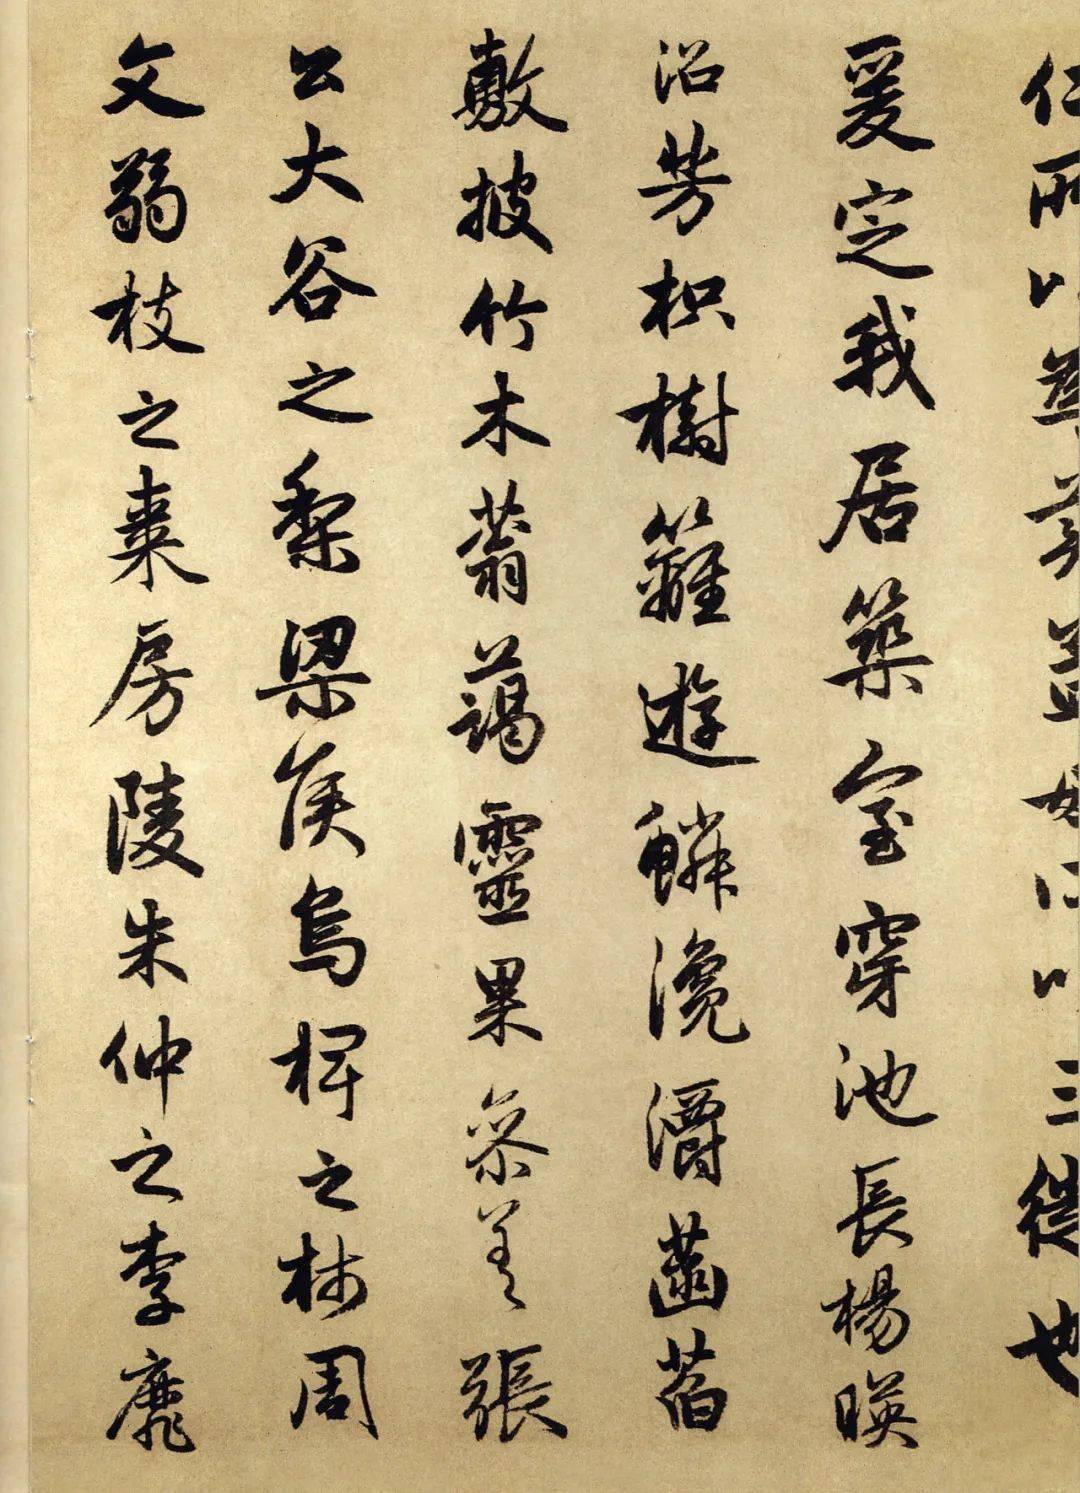 仁所以為美孟母所以三徙也
爰定我居築室穿池長楊暎
沼芳枳樹籬遊鱗瀺灂菡萏
敷披竹木蓊藹靈果參差張
公大谷之梨梁侯烏椑之柿周
文弱枝之棗房陵朱仲之李靡